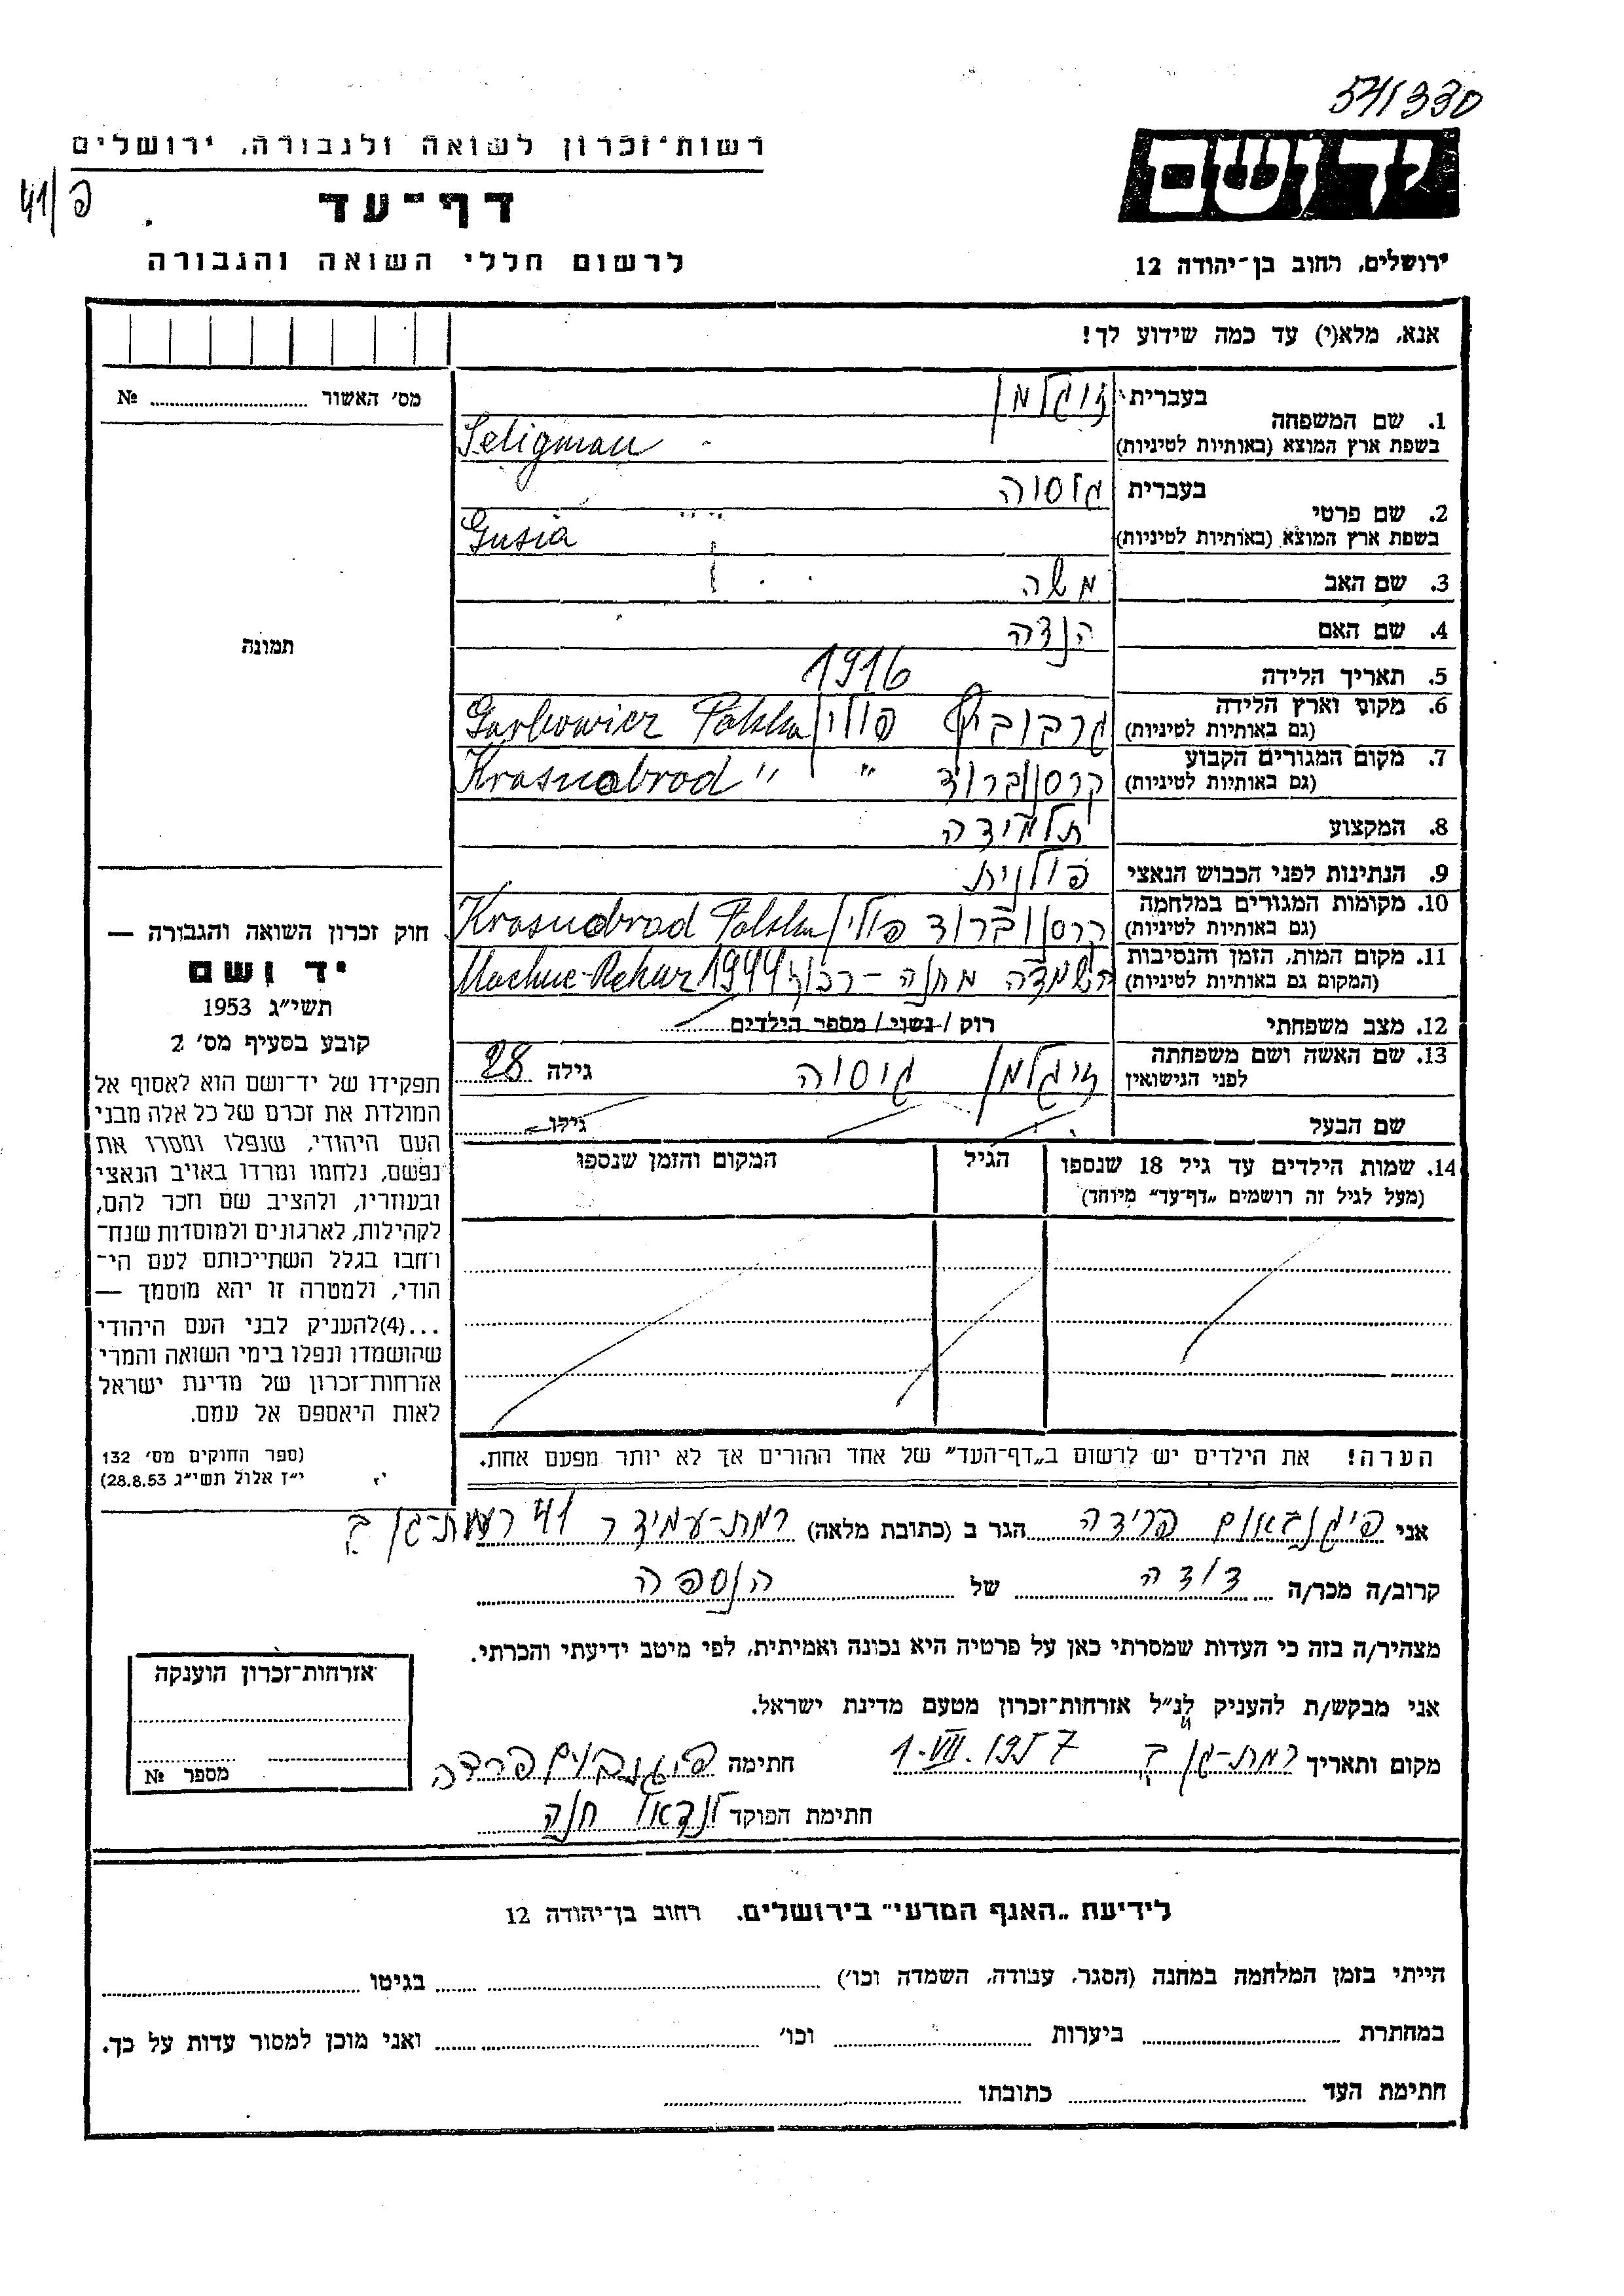 571330
רשות־זכרון לשואה ולגבורה, ירושלים
פ/41
יד ושם
דף־עד
לרשום חללי השואה והגבורה
ירושלים, רחוב בן־יהודה 12
אנא, מלא(י) עד כמה שידוע לך!
מס׳ האשור № 
תמונה
1. שם המשפחה בעברית זיגלמן
בשפת ארץ המוצא (באותיות לטיניות) Seligman
2. שם פרטי בעברית גוסיה
בשפת ארץ המוצא (באותיות לטיניות) Gusia
3. שם האב משה
4. שם האם הנדה
5. תאריך הלידה 1916
6. מקום וארץ הלידה
(גם באותיות לטיניות) פולין Polska
7. מקום המגורים הקבוע
(גם באותיות לטיניות) קרסנוברוד " Krasnobrod "
8. המקצוע תלמידה
9. הנתינות לפני הכבוש הנאצי פולנית
10. מקומות המגורים במלחמה
(גם באותיות לטיניות) קרסנוברוד פולין Krasnobrod Polska
11. מקום המות, הזמן והנסיבות
(המקום גם באותיות לטיניות) השמדה מחנה - 1944
12. מצב משפחתי רוק / נשוי / מספר הילדים
13. שם האשה ושם משפחתה
לפני הנישואין זיגלמן גוסיה גילה 28
שם הבעל גילו
14. שמות הילדים עד גיל 18 שנספו הגיל המקום והזמן שנספו
(מעל לגיל זה רושמים „דף־עד" מיוחד)
הערה! את הילדים יש לרשום ב„דף־העד" של אחד ההורים אך לא יותר מפעם אחת.
חוק זכרון השואה והגבורה —
יד ושם
תשי״ג 1953
קובע בסעיף מס׳ 2
תפקידו של יד־ושם הוא לאסוף אל
המולדת את זכרם של כל אלה מבני
העם היהודי, שנפלו ומסרו את
נפשם, נלחמו ומרדו באויב הנאצי
ובעוזריו, ולהציב שם וזכר להם,
לקהילות, לארגונים ולמוסדות שנח־
רחבו בגלל השתייכותם לעם הי־
הודי, ולמטרה זו יהא מוסמך —
...(4)להעניק לבני העם היהודי
שהושמדו ונפלו בימי השואה והמרי
אזרחות־זכרון של מדינת ישראל
לאות היאספם אל עמם.
(ספר החוקים מס׳ 132
י״ז אלול תשי״ג 28.8.53)
אני פיגנבאום פרידה הגר ב (כתובת מלאה) רמת-עמידר 41 רמת-גן ב
קרוב/ה מכר/ה דודה של הנספה
מצהיר/ה בזה כי העדות שמסרתי כאן על פרטיה היא נכונה ואמיתית, לפי מיטב ידיעתי והכרתי.
אני מבקש/ת להעניק לנ״ל אזרחות־זכרון מטעם מדינת ישראל.
מקום ותאריך רמת-גן ב 1.VII.1957 חתימה פיגנבוים פרידה
חתימת הפוקד לנדאו חנה
אזרחות־זכרון הוענקה
מספר №
לידיעת „האגף המדעי" בירושלים. רחוב בן־יהודה 12
הייתי בזמן המלחמה במחנה (הסגר, עבודה, השמדה וכו׳) בגיטו
במחתרת ביערות וכו׳ ואני מוכן למסור עדות על כך.
חתימת העד כתובתו